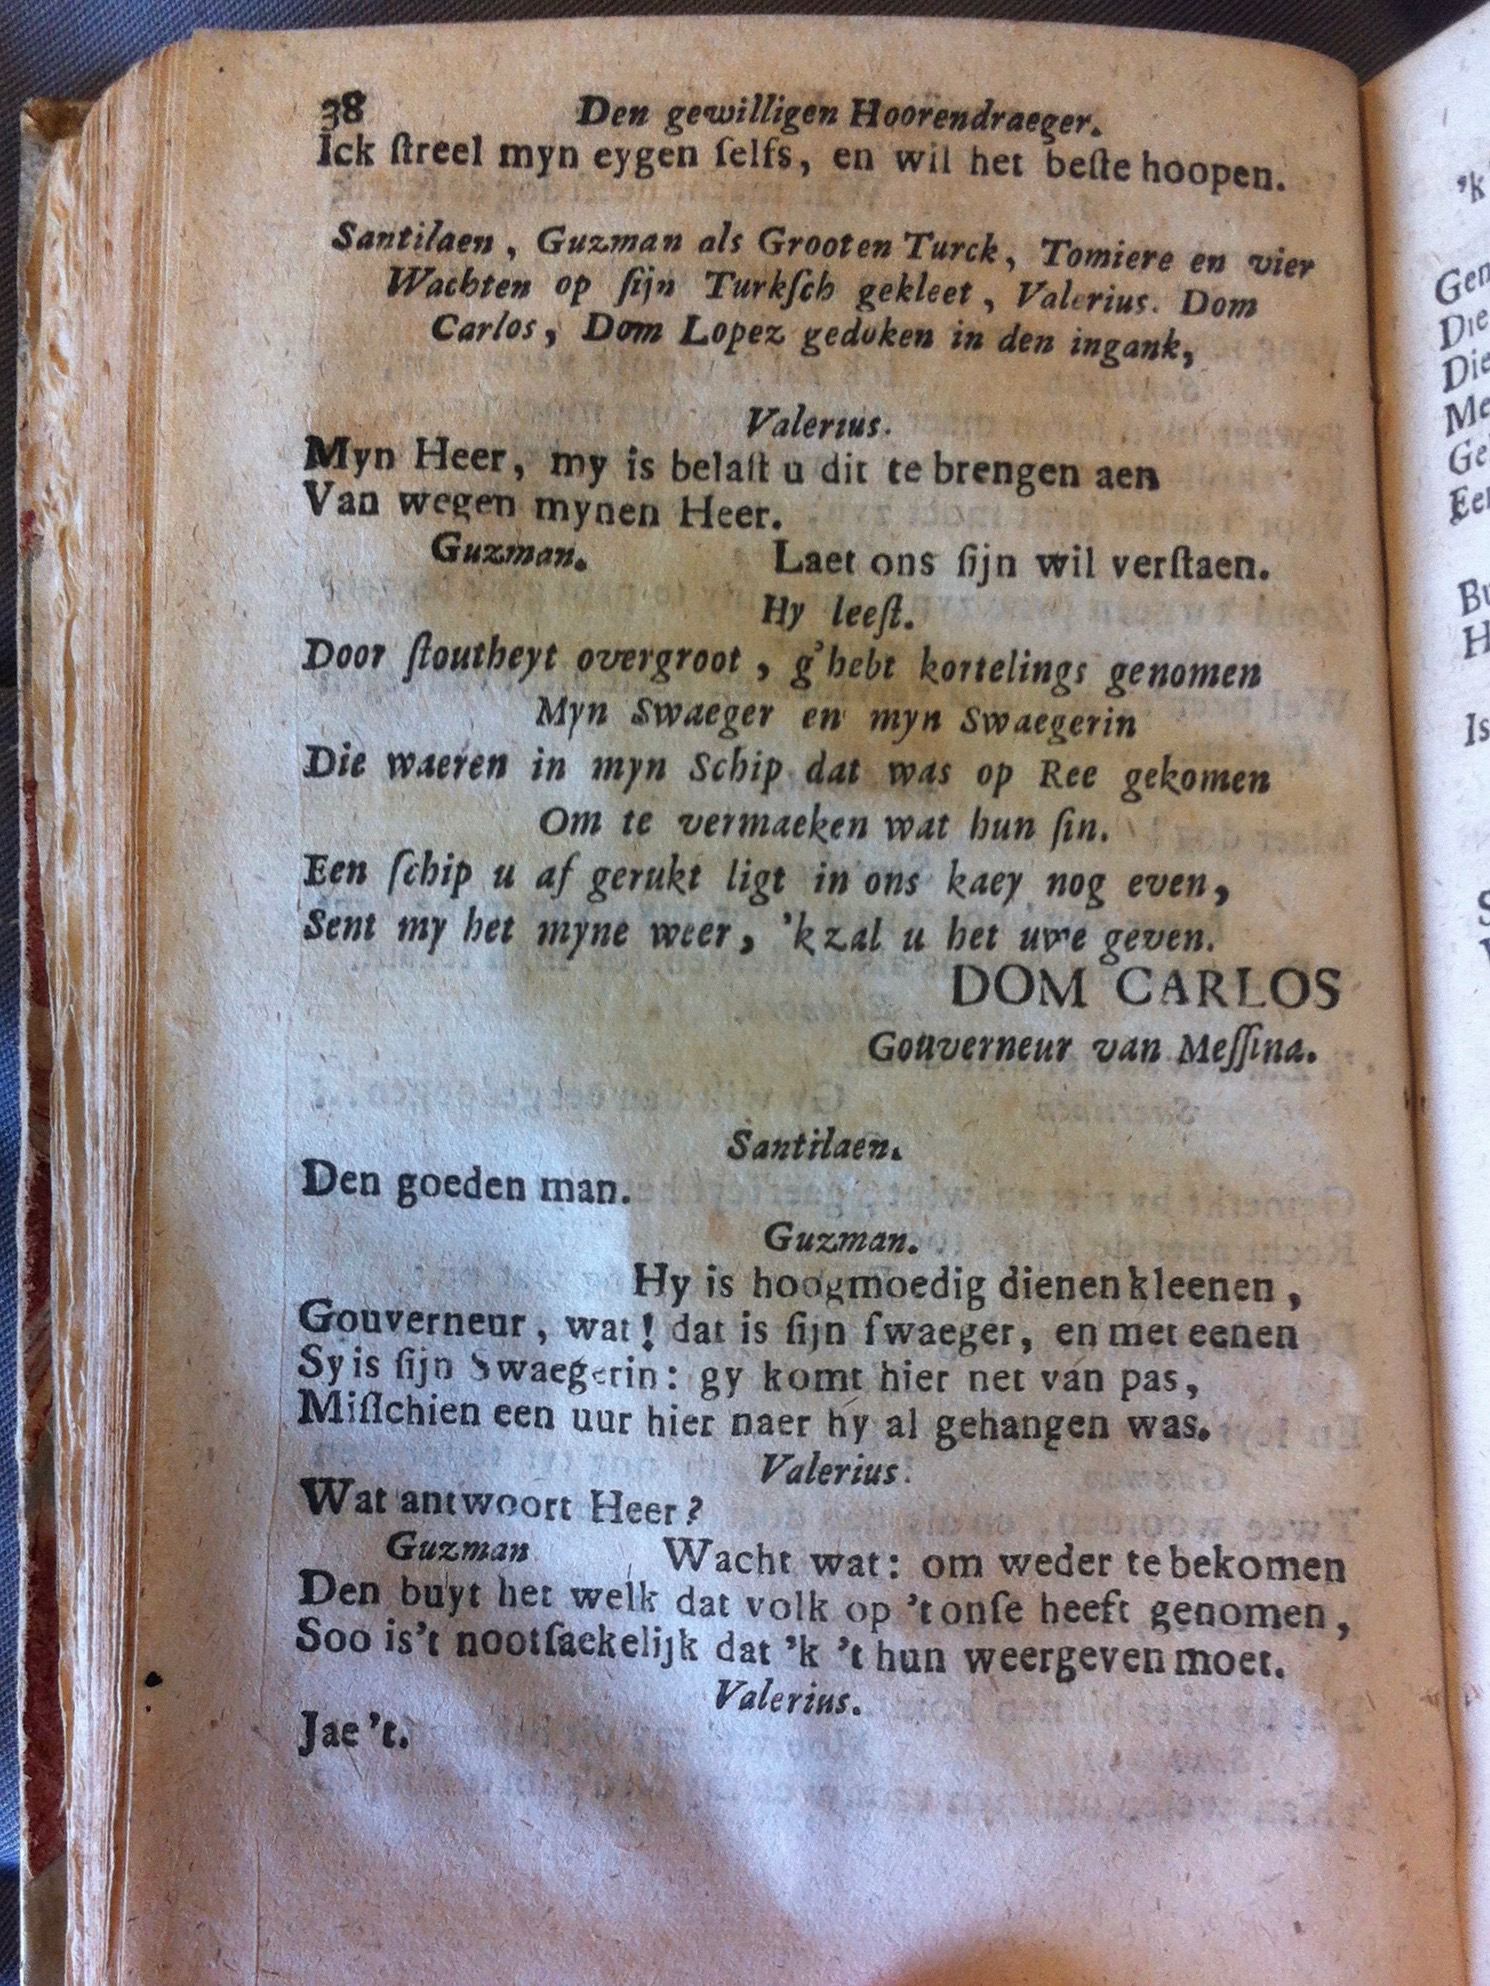 38 Den gewilligen Hoorendraeger.
Ick ſtreel myn eygen ſelfs, en wil het beſte hoopen.
Santilaen, Guzman als Grooten Turck, Tomiere en vier
Wachten op ſijn Turkſch gekleet, Valerius. Dom
Carlos, Dom Lopez gedoken in den ingank,
Valerius.
Myn Heer, my is belaſt u dit te brengen aen
Van wegen mynen Heer.
Guzman. Laet ons ſijn wil verſtaen.
Hy leeſt.
Door ſtoutheyt overgroot, g'hebt kortelings genomen
Myn Swaeger en myn Swaegerin
Die waeren in myn Schip dat was op Ree gekomen
Om te vermaeken wat hun ſin.
Een ſchip u af gerukt ligt in ons kaey nog even,
Sent my het myne weer, 'k zal u het uwe geven.
DOM CARLOS
Gouverneur van Meſſina.
Santilaen.
Den goeden man.
Guzman.
Hy is hoogmoedig dienen kleenen,
Gouverneur, wat! dat is ſijn ſwaeger, en met eenen
Sy is ſijn Swaegerin: gy komt hier net van pas,
Miſſchien een uur hier naer hy al gehangen was.
Valerius.
Wat antwoort Heer?
Guzman Wacht wat: om weder te bekomen
Den buyt het welk dat volk op 't onſe heeft genomen,
Soo is't nootſaekelijk dat 'k 't hun weergeven moet.
Valerius.
Jae 't.
'k
Gen
Die
Die
Me
Ge
Ee
Bu
H
Is
S